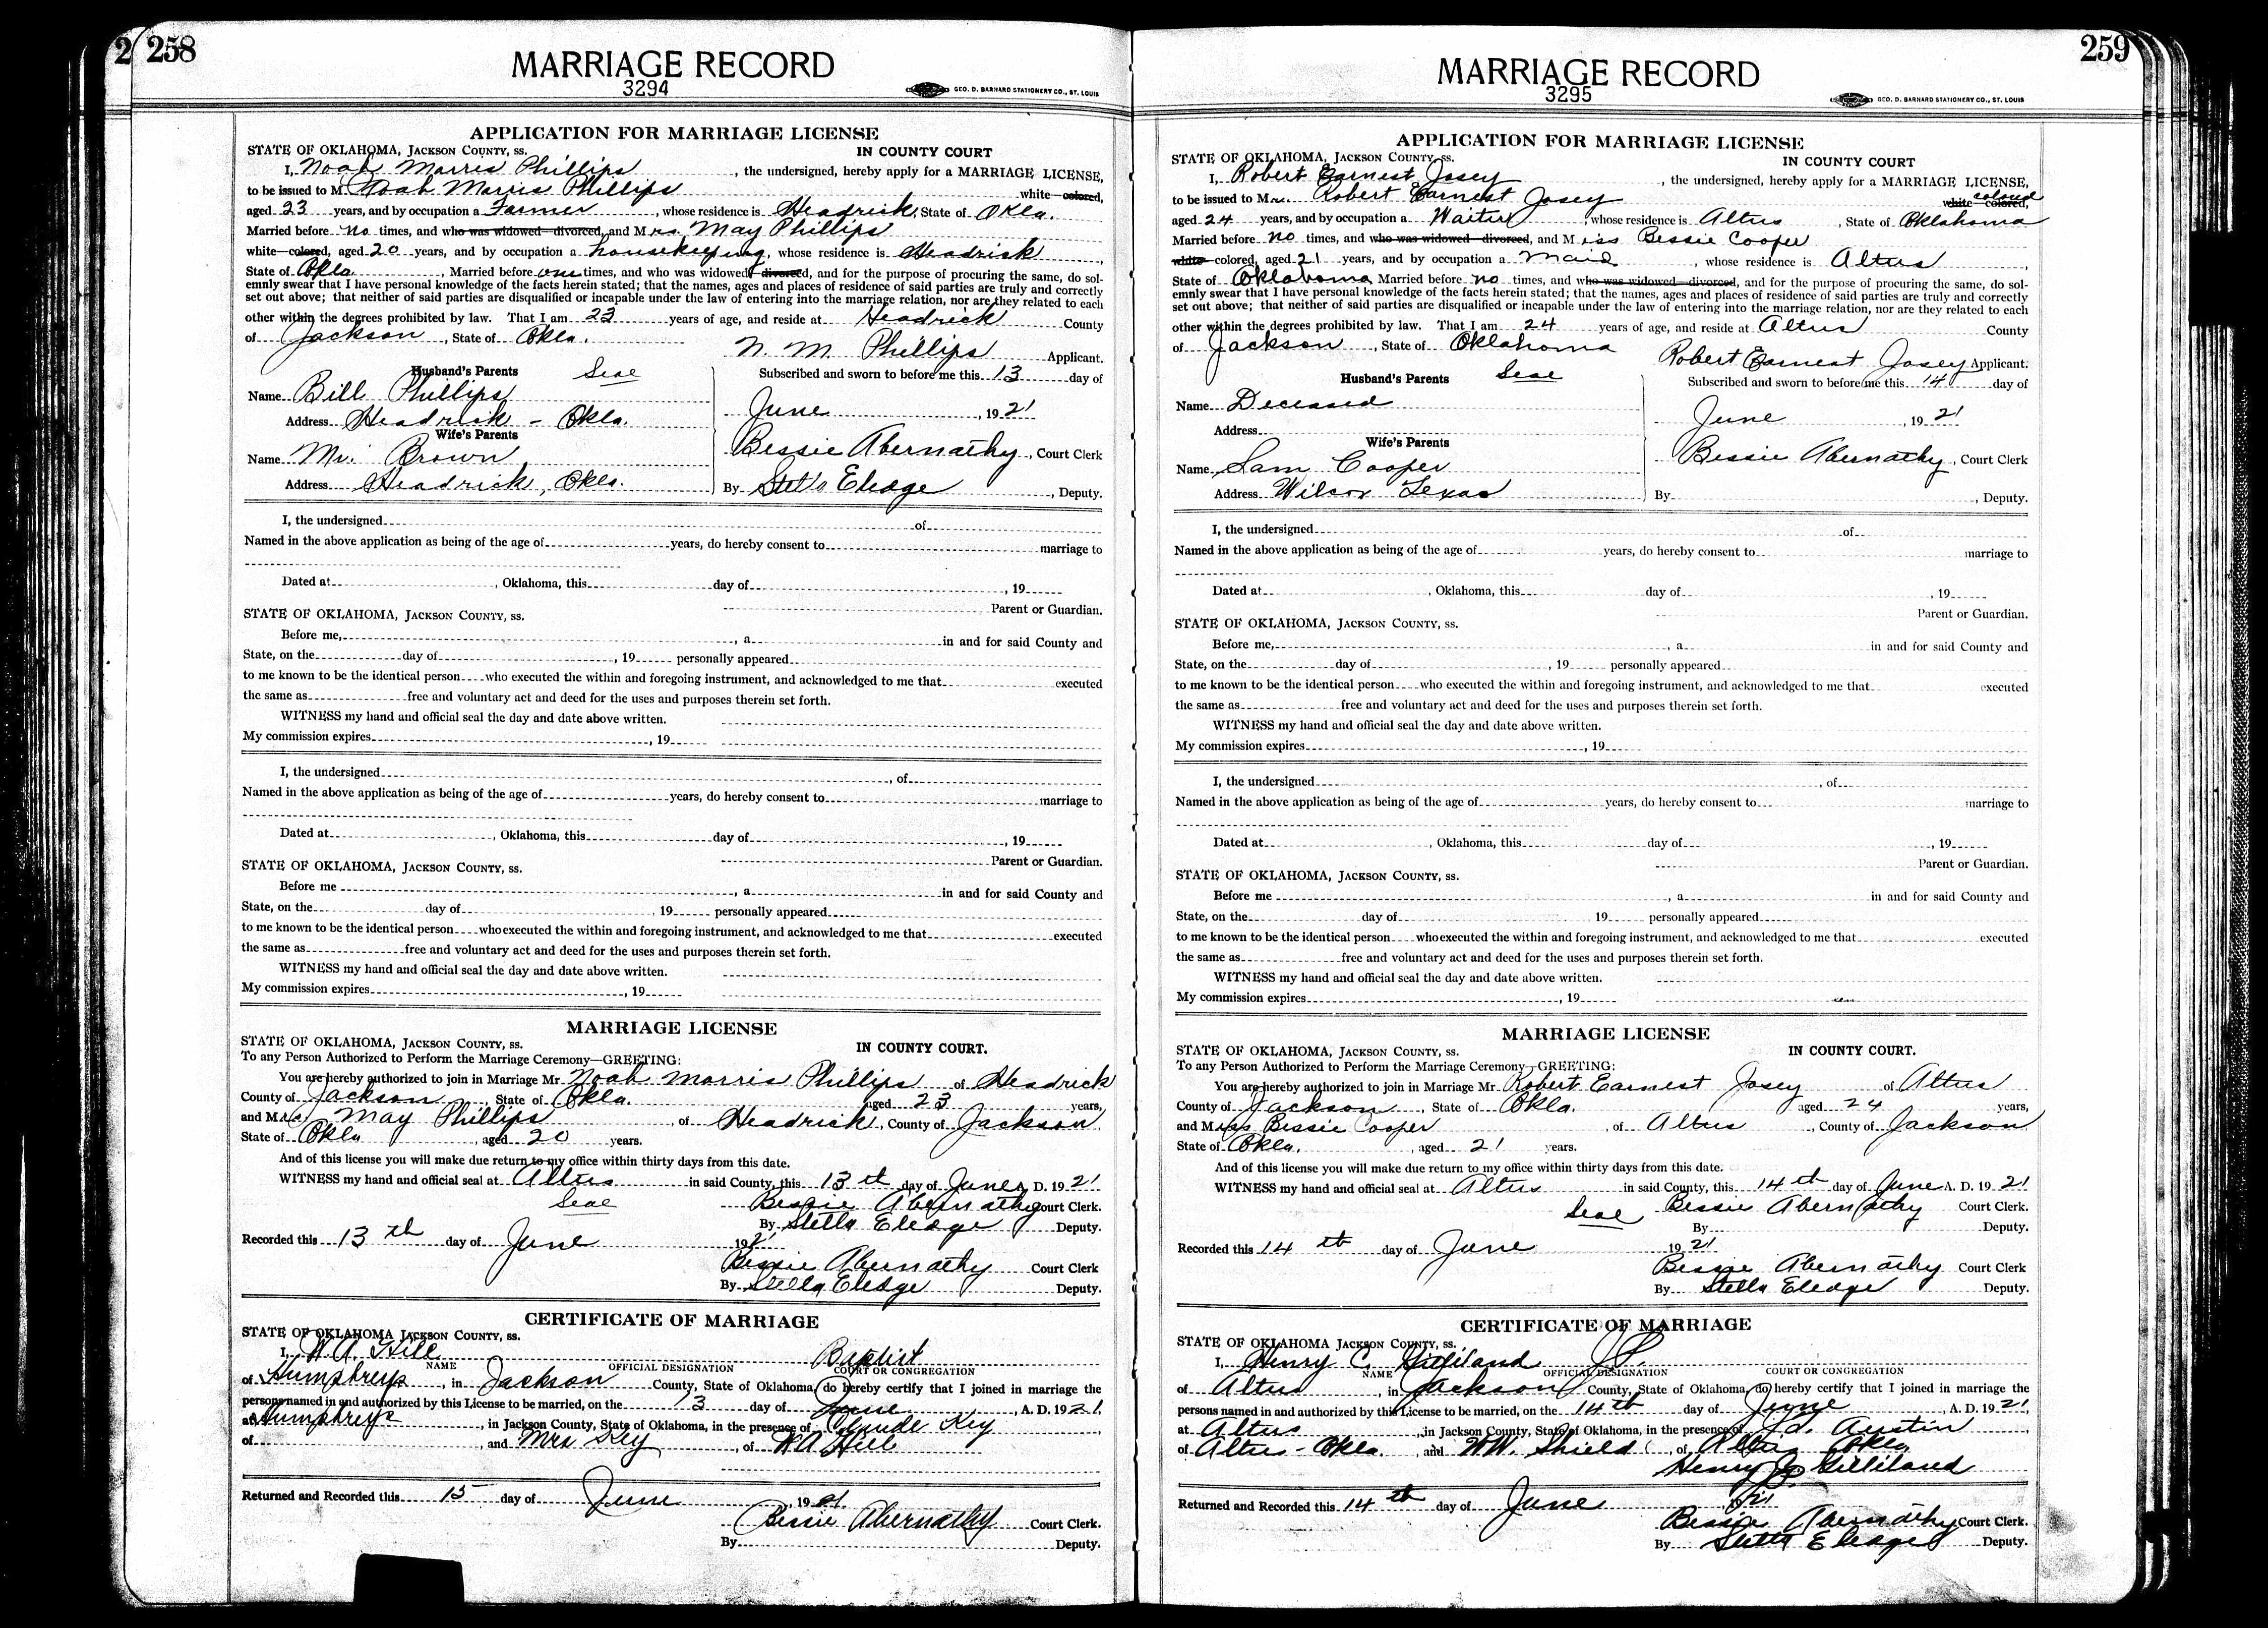 2 258
MARRIAGE RECORD
3294
GEO. D. BARNARD STATIONERY CO., ST. LOUIS
APPLICATION FOR MARRIAGE LICENSE
STATE OF OKLAHOMA, JACKSON COUNTY, ss. IN COUNTY COURT
I, Noah Morris Phillips, the undersigned, hereby apply for a MARRIAGE LICENSE,
to be issued to M Noah Morris Phillips white colored,
aged 23 years, and by occupation a Farmer, whose residence is Headrick, State of Okla.
Married before no times, and who was widowed divorced, and Mrs. May Phillips
white—colored, aged 20 years, and by occupation a housekeeping, whose residence is Headrick,
State of Okla, Married before one times, and who was widowed divorced, and for the purpose of procuring the same, do sol-
emnly swear that I have personal knowledge of the facts herein stated; that the names, ages and places of residence of said parties are truly and correctly
set out above; that neither of said parties are disqualified or incapable under the law of entering into the marriage relation, nor are they related to each
other within the degrees prohibited by law. That I am 23 years of age, and reside at Headrick County
of Jackson, State of Okla.
N. M. Phillips Applicant.
Husband's Parents Seal
Subscribed and sworn to before me this 13 day of
Name Bill Phillips
Address Headrick - Okla.
June, 1921
Wife's Parents
Name Mr. Brown
Bessie Abernathy, Court Clerk
Address Headrick, Okla.
By Stella Eledge, Deputy.
I, the undersigned of
Named in the above application as being of the age of years, do hereby consent to marriage to
Dated at , Oklahoma, this day of , 19
Parent or Guardian.
STATE OF OKLAHOMA, JACKSON COUNTY, ss.
Before me, , a in and for said County and
State, on the day of , 19 personally appeared
to me known to be the identical person who executed the within and foregoing instrument, and acknowledged to me that executed
the same as free and voluntary act and deed for the uses and purposes therein set forth.
WITNESS my hand and official seal the day and date above written.
My commission expires , 19
I, the undersigned , of
Named in the above application as being of the age of years, do hereby consent to marriage to
Dated at , Oklahoma, this day of , 19
Parent or Guardian.
STATE OF OKLAHOMA, JACKSON COUNTY, ss.
Before me , a in and for said County and
State, on the day of 19 personally appeared
to me known to be the identical person who executed the within and foregoing instrument, and acknowledged to me that executed
the same as free and voluntary act and deed for the uses and purposes therein set forth.
WITNESS my hand and official seal the day and date above written.
My commission expires , 19
MARRIAGE LICENSE
STATE OF OKLAHOMA, JACKSON COUNTY, ss. IN COUNTY COURT.
To any Person Authorized to Perform the Marriage Ceremony—GREETING:
You are hereby authorized to join in Marriage Mr Noah Morris Phillips of Headrick
County of Jackson, State of Okla. aged 23 years,
and Mrs. May Phillips, of Headrick, County of Jackson
State of Okla, aged 20 years.
And of this license you will make due return to my office within thirty days from this date.
WITNESS my hand and official seal at Altus in said County, this 13th day of June A. D. 1921
Seal Bessie Abernathy Court Clerk.
By Stella Eledge Deputy.
Recorded this 13th day of June 1921
Bessie Abernathy Court Clerk
By Stella Eledge Deputy.
CERTIFICATE OF MARRIAGE
STATE OF OKLAHOMA JACKSON COUNTY, ss.
I, W. A. Hill Baptist
NAME OFFICIAL DESIGNATION COURT OR CONGREGATION
of Humphreys, in Jackson County, State of Oklahoma, do hereby certify that I joined in marriage the
persons named in and authorized by this License to be married, on the 13 day of June, A. D. 1921,
at Humphreys, in Jackson County, State of Oklahoma, in the presence of Claude Key
of , and Mrs Key, of W A Hill
Returned and Recorded this 15 day of June, 1921.
Bessie Abernathy Court Clerk.
By Deputy.
259
MARRIAGE RECORD
3295
GEO. D. BARNARD STATIONERY CO., ST. LOUIS
APPLICATION FOR MARRIAGE LICENSE
STATE OF OKLAHOMA, JACKSON COUNTY, ss. IN COUNTY COURT
I, Robert Earnest Josey, the undersigned, hereby apply for a MARRIAGE LICENSE,
to be issued to Mr. Robert Earnest Josey white colored, colored
aged 24 years, and by occupation a Waiter, whose residence is Altus, State of Oklahoma
Married before no times, and who was widowed divorced, and Miss Bessie Cooper
white colored, aged 21 years, and by occupation a Maid, whose residence is Altus,
State of Oklahoma Married before no times, and who was widowed—divorced, and for the purpose of procuring the same, do sol-
emnly swear that I have personal knowledge of the facts herein stated; that the names, ages and places of residence of said parties are truly and correctly
set out above; that neither of said parties are disqualified or incapable under the law of entering into the marriage relation, nor are they related to each
other within the degrees prohibited by law. That I am 24 years of age, and reside at Altus County
of Jackson, State of Oklahoma
Robert Earnest Josey Applicant.
Husband's Parents Seal
Subscribed and sworn to before me this 14 day of
Name Deceased
Address
June, 1921
Wife's Parents
Name Sam Cooper
Bessie Abernathy, Court Clerk
Address Wilcox Texas
By , Deputy.
I, the undersigned of
Named in the above application as being of the age of years, do hereby consent to marriage to
Dated at , Oklahoma, this day of , 19
Parent or Guardian.
STATE OF OKLAHOMA, JACKSON COUNTY, ss.
Before me, , a in and for said County and
State, on the day of , 19 personally appeared
to me known to be the identical person who executed the within and foregoing instrument, and acknowledged to me that executed
the same as free and voluntary act and deed for the uses and purposes therein set forth.
WITNESS my hand and official seal the day and date above written.
My commission expires , 19
I, the undersigned , of
Named in the above application as being of the age of years, do hereby consent to marriage to
Dated at , Oklahoma, this day of , 19
Parent or Guardian.
STATE OF OKLAHOMA, JACKSON COUNTY, ss.
Before me , a in and for said County and
State, on the day of 19 personally appeared
to me known to be the identical person who executed the within and foregoing instrument, and acknowledged to me that executed
the same as free and voluntary act and deed for the uses and purposes therein set forth.
WITNESS my hand and official seal the day and date above written.
My commission expires , 19
MARRIAGE LICENSE
STATE OF OKLAHOMA, JACKSON COUNTY, ss. IN COUNTY COURT.
To any Person Authorized to Perform the Marriage Ceremony—GREETING:
You are hereby authorized to join in Marriage Mr Robert Earnest Josey of Altus
County of Jackson, State of Okla. aged 24 years,
and Miss Bessie Cooper, of Altus, County of Jackson
State of Okla., aged 21 years.
And of this license you will make due return to my office within thirty days from this date.
WITNESS my hand and official seal at Altus in said County, this 14th day of June A. D. 1921
Seal Bessie Abernathy Court Clerk.
By Deputy.
Recorded this 14th day of June 1921
Bessie Abernathy Court Clerk
By Stella Eledge Deputy.
CERTIFICATE OF MARRIAGE
STATE OF OKLAHOMA JACKSON COUNTY, ss.
I, Henry C. Gilliland J.P.
NAME OFFICIAL DESIGNATION COURT OR CONGREGATION
of Altus, in Jackson County, State of Oklahoma, do hereby certify that I joined in marriage the
persons named in and authorized by this License to be married, on the 14th day of June, A. D. 1921,
at Altus, in Jackson County, State of Oklahoma, in the presence of J.d. Austin
of Altus - Okla. and W.W. Shield, of Altus Okla
Henry C. Gilliland
Returned and Recorded this 14th day of June 1921
Bessie Abernathy Court Clerk.
By Stella Eledge Deputy.